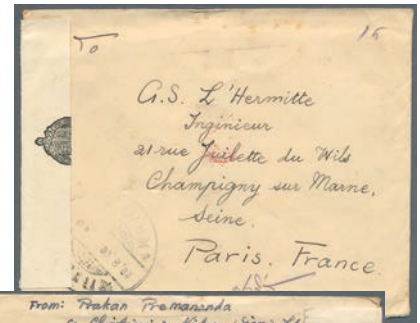 To
15
G.S. L'Hermitte
Inginieur
21 rue Juilette du Wils
Champigny sur Marne,
Seine.
Paris. France.
From: Prakan Premananda